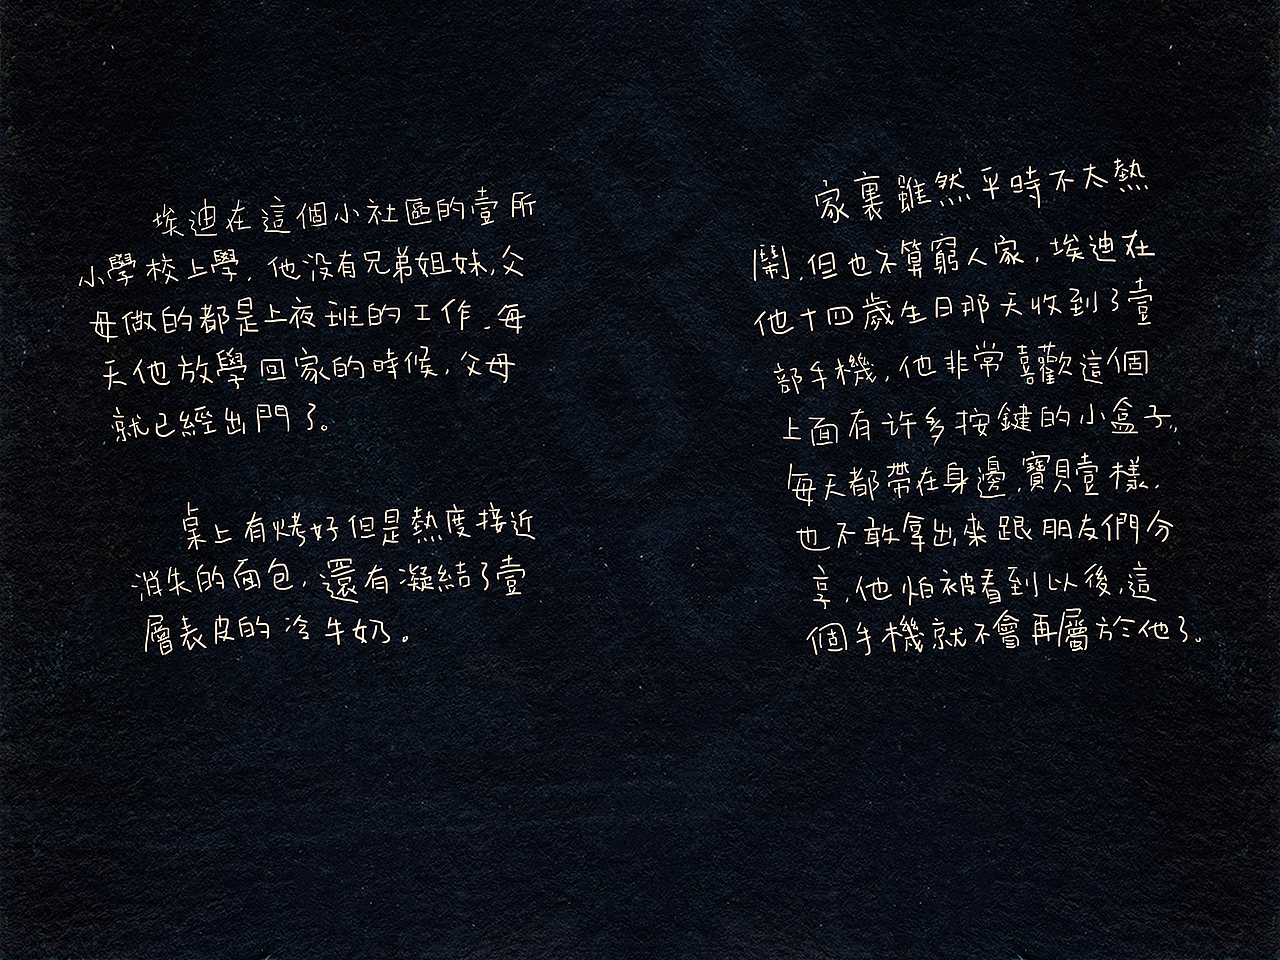 埃迪在這個小社區的壹所
小學校上學，他没有兄弟姐妹，父
母做的都是上夜班的工作，每
天他放學回家的時候，父母
就已經出門了。
桌上有烤好但是熱度接近
消失的面包，還有凝結了壹
層表皮的冷牛奶。
家裏雖然平時不太熱
鬧，但也不算窮人家，埃迪在
他十四歲生日那天收到了壹
部手機，他非常喜歡這個
上面有许多按鍵的小盒子，
每天都帶在身邊，寶貝壹樣，
也不敢拿出來跟朋友們分
享，他怕被看到以後，這
個手機就不會再屬於他了。